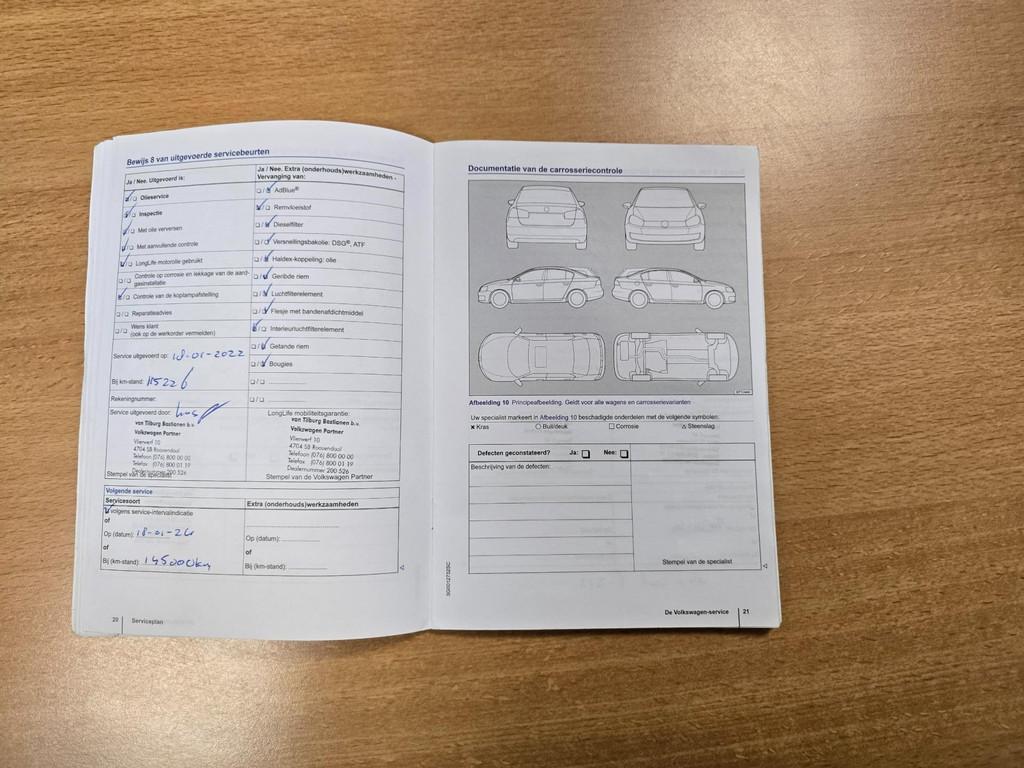 Bewijs 8 van uitgevoerde servicebeurten
Ja / Nee. Uitgevoerd is:
Olieservice
Inspectie
Met olie verversen
Met aanvullende controle
LongLife motorolie gebruikt
Controle op corrosie en lekkage van de aard-
gasinstallatie
Controle van de koplampafstelling
Reparatieadvies
Wens klant
(ook op de werkorder vermelden)
Service uitgevoerd op: 18-01-2022
Bij km-stand: 115226
Rekeningnummer:
Service uitgevoerd door:
van Tilburg Bastianen b.v.
Volkswagen Partner
Vlierwerf 10
4704 SB Roosendaal
Telefoon (076) 800 00 00
Telefax (076) 800 01 19
Dealernummer 200 526
Stempel van de specialist
Ja / Nee. Extra (onderhouds)werkzaamheden -
Vervanging van:
AdBlue®
Remvloeistof
Dieselfilter
Versnellingsbakolie: DSG®, ATF
Haldex-koppeling: olie
Geribde riem
Luchtfilterelement
Flesje met bandenafdichtmiddel
Interieurluchtfilterelement
Getande riem
Bougies
LongLife mobiliteitsgarantie:
van Tilburg Bastianen b.v.
Volkswagen Partner
Vlierwerf 10
4704 SB Roosendaal
Telefoon (076) 800 00 00
Telefax (076) 800 01 19
Dealernummer 200 526
Stempel van de Volkswagen Partner
Volgende service
Servicesoort
volgens service-intervalindicatie
of
Op (datum): 18-01-24
of
Bij (km-stand): 145000km
Extra (onderhouds)werkzaamheden
Op (datum):
of
Bij (km-stand):
20 Serviceplan
Documentatie van de carrosseriecontrole
Afbeelding 10 Principeafbeelding. Geldt voor alle wagens en carrosserievarianten
Uw specialist markeert in Afbeelding 10 beschadigde onderdelen met de volgende symbolen:
x Kras
Buil/deuk
Corrosie
Steenslag
Defecten geconstateerd? Ja: Nee:
Beschrijving van de defecten:
Stempel van de specialist
De Volkswagen-service 21